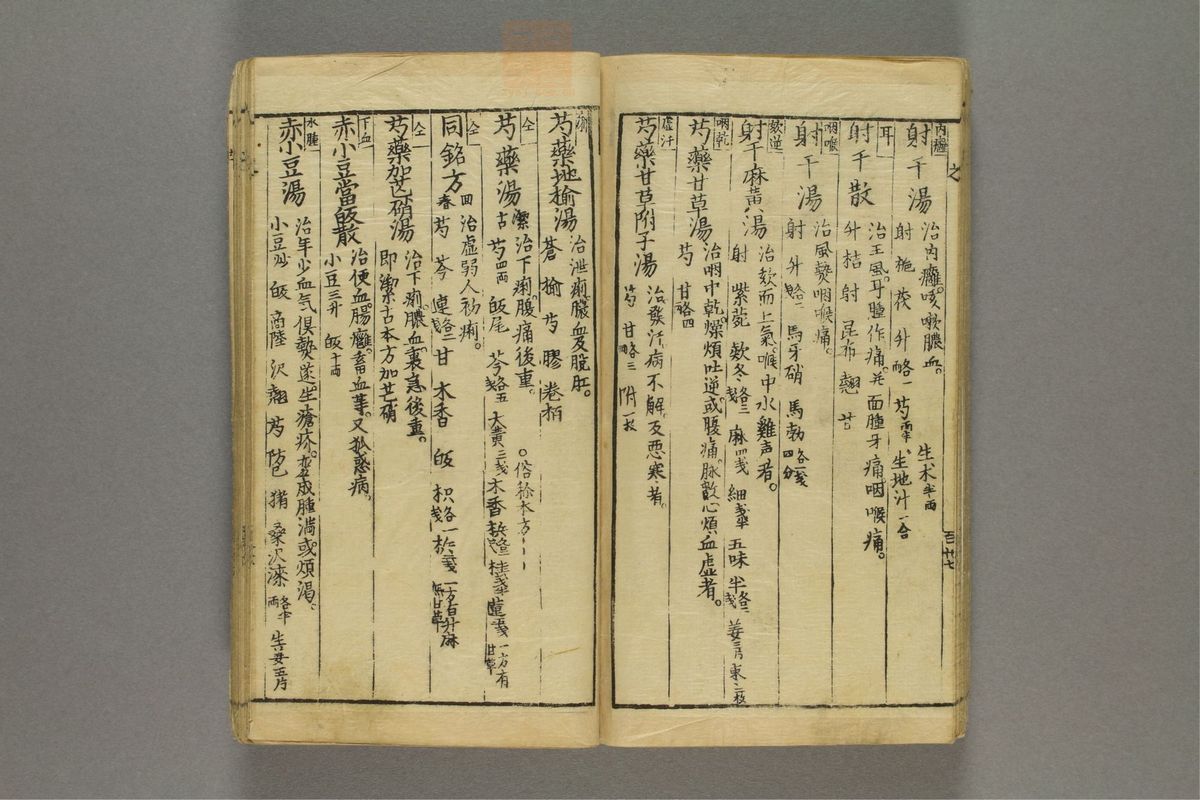 之
内癰
射干湯
治内癰。咳嗽膿血。
射 梔 茂 升 略一 芍 両半 生地汁 一合
生术 半両
耳
射干散
治王風。耳腫作痛。并面腫牙痛咽喉痛。
升 桔 射 昆布 翹 甘
咽喉
射干湯
治風熱咽喉痛。
射 升 略二 馬牙硝 馬勃 各一戔 四分
欬逆
射干麻黄湯
治欬而上氣。喉中水雞声者。
射 紫菀 欵冬 各三戔 麻 四戔 細 戔半 五味 半戔 姜 三片 東 二枚
咽乾
芍藥甘草湯
治咽中乾。燥煩吐逆。或腹痛。脉數心煩血虚者。
芍 甘 各四
虚汗
芍藥甘草附子湯
治發汗。病不解。反悪寒者。
芍 甘 各三 附 一枚
百廿七
芍藥地榆湯
治泄痢。膿血及脱肛。
蒼 榆 芍 膠 巻栢
仝
芍藥湯 潔古
治下痢。腹痛後重。
芍 四両 皈尾 芩 各五 大黄 三戔 木香 桂 戔半 連 五戔 一方有甘草
○俗称本方
仝
同銘方 回春
治虚弱人初痢。
芍 芩 連 各二戔 甘 木香 皈 枳 各一戔 一方有升麻無甘草
仝
芍藥加芒硝湯
治下痢。膿血。裏急後重。
即潔古本方加芒硝
下血
赤小豆當皈散
治便血。腸癰。畜血等。又狐惑病。
小豆 三升 皈 十両
水腫
赤小豆湯
治年少血気倶熱遂生瘡疥。変成腫満。或煩渇。
小豆炒 皈 商陸 沢 翹 芍 防已 猪 桑 次漆 各半両 生姜 五片